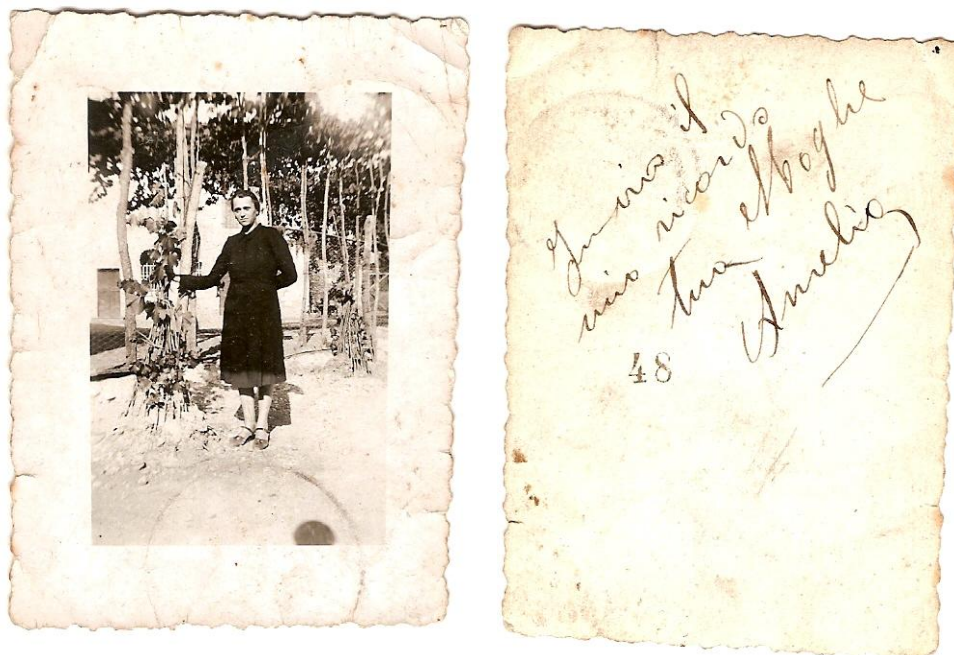 Invio il
mio ricordo
tua Moglie
Amelia
48